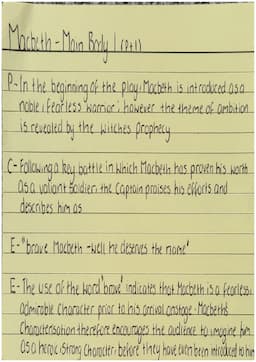 Macbeth - Main Body 1 (Pt1)
P - In the beginning of the play, Macbeth is introduced as a
noble, fearless warrior; however the theme of ambition
is revealed by the witches prophecy
C - Following a key battle in which Macbeth has proven his worth
as a valiant soldier, the Captain praises his efforts and
describes him as
E - "brave Macbeth - well he deserves the name"
E - The use of the word 'brave' indicates that Macbeth is a fearless,
admirable character prior to his arrival onstage. Macbeth's
characterisation therefore encourages the audience to imagine him
as a heroic, strong character, before they have even been introduced to him